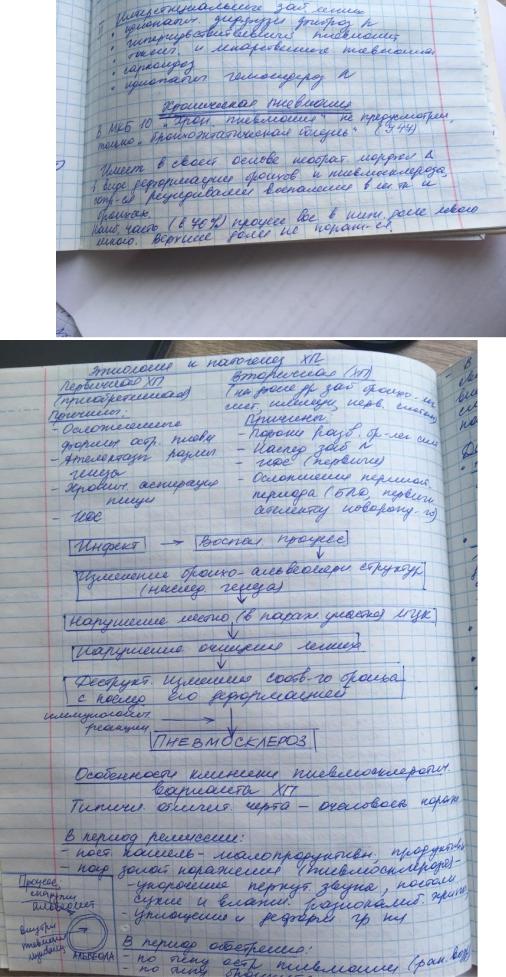 II Интерстициальные заб легких
• идиопатич. диффузн фиброз л
• гиперчувствительный пневмонит
• токсич. и лекарственные пневмопатии
• саркоидоз
• идиопатич гемосидероз л
Хроническая пневмония
В МКБ 10 "Хрон. пневмония" не предусмотрен,
только "Бронхоэктатическая болезнь" (J 47)
Имеет в своей основе необрат морфол Δ
в виде деформации бронхов и пневмосклероза
сопр-ся рецидивами воспаления в лег. тк и
бронхах.
Наиб. часто (в 70%) процесс вос в ниж. доле левого
легкого. Верхние доли не пораж-ся.
Этиология и патогенез ХП
Первичная ХП
(приобретенная)
Причины:
- Осложненные
формы остр. пневм
- Ателектазы различ
генеза
- Хронич. аспирация
пищи
- ИДС
Вторичная (ХП)
(на фоне др заб бронхо-лег
сист, иммунн, нерв.
Причины:
- Пороки разв. бр-лег сист
- Наслед заб л
- ИДС (первичн)
- Осложнения перинат.
периода (БЛД, первичн
ателектаз новорожд-го)
Инфект → Воспал процесс
Изменение бронхо-альвеолярн структур
(наслед. генеза)
Нарушение местно (в пораж. участке) МЦК
Нарушение очищения легких
Деструкт. изменения соотв-го бронха
с послед его деформацией
иммунопатол
реакции
ПНЕВМОСКЛЕРОЗ
Особенности клиники пневмосклеротич.
варианта ХП
Типичн. отличит. черта – очаговость пораж
В период ремиссии:
- пост. кашель - малопродуктивн, продуктивн
- над зоной поражения (пневмосклероза) -
- укорочение перкут. звука, постоян
сухие и влажн. разнокалиб. хрипы
- уплощение и деформ гр кл
Процесс
внутри
АЛЬВЕОЛА
В период обострения:
- по типу остр пневмонии
- по типу